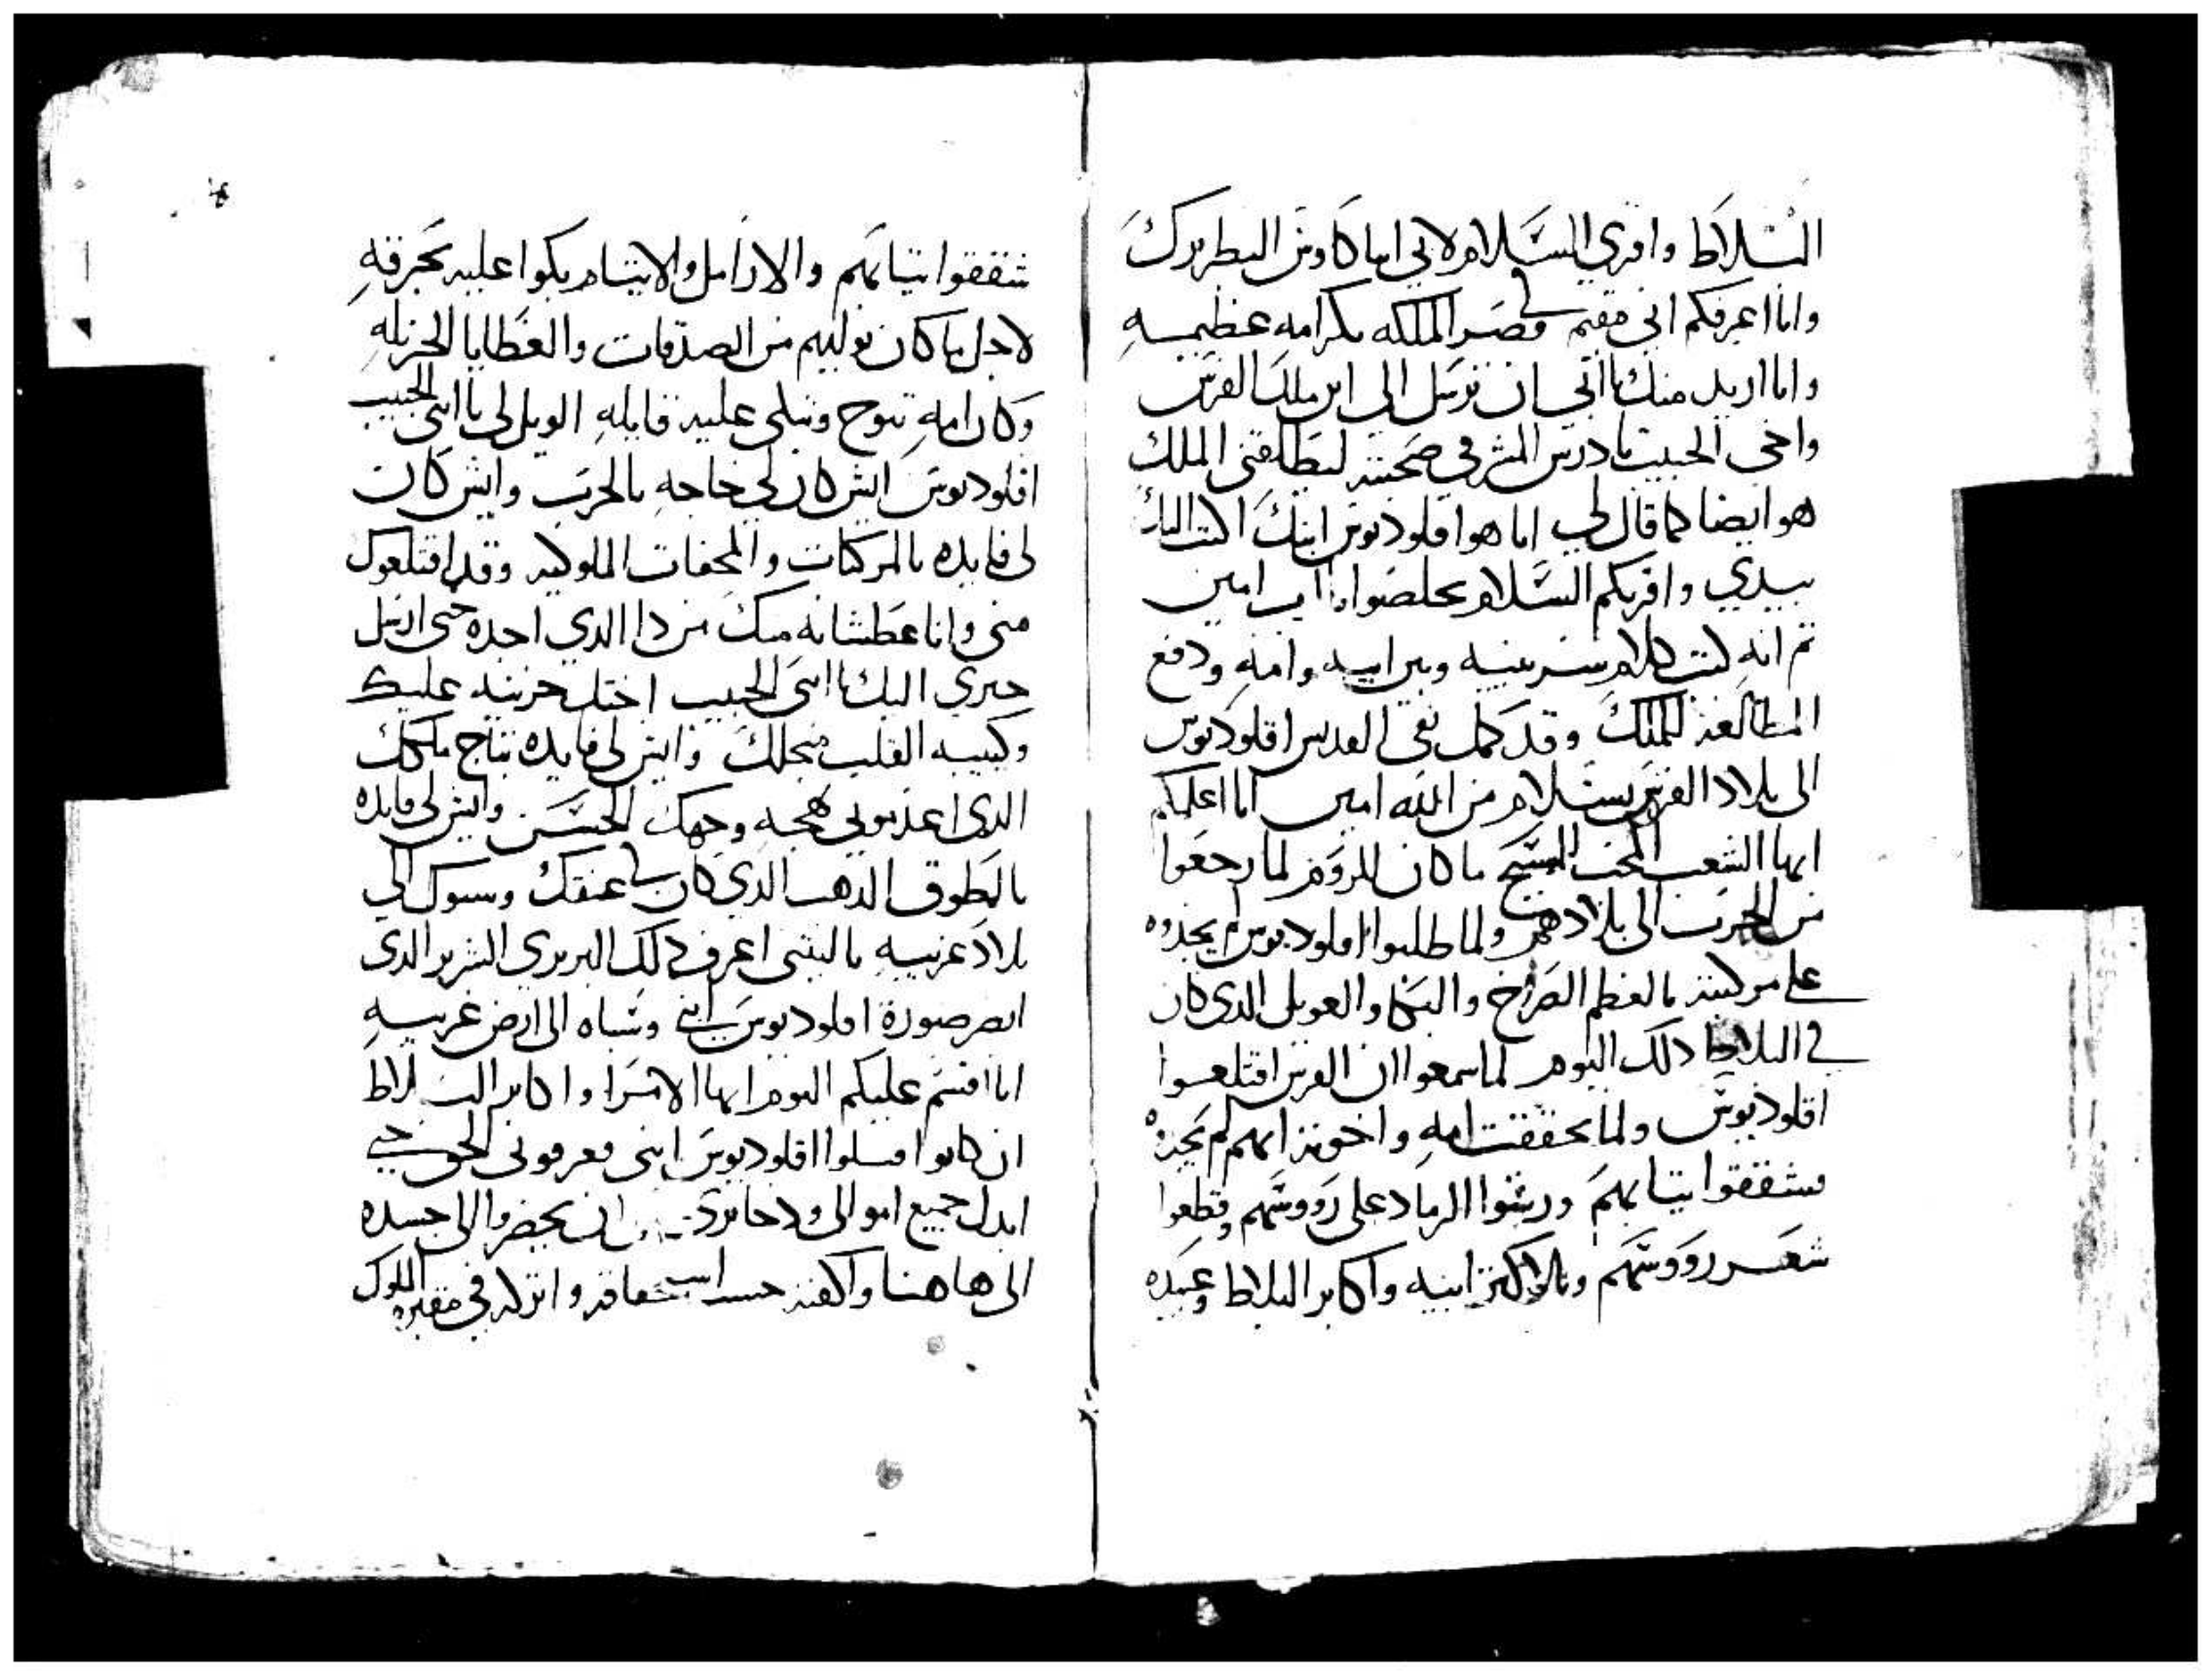 البلاط واقري السلام لابي ابا كاوس البطريرك
وانا اعرفكم اني مقيم في قصر المملكه بكرامه عظيمه
وانا اريد منك يا ابي ان ترسل الي ابن ملك الفرس
واخي الحبيب تادرس المشرقي صحبته ليطلقني الملك
هو ايضا كما قال لي انا هو اقلوديوس ابنك اكتب اليك
بيدي واقريكم السلام بخلصوا يا ابي امين
ثم انه كتب كلام سر بينه وبين ابيه وامه ودفع
المطالعه للملك وقد كمل نفي القديس اقلوديوس
الى بلاد الفرس بسلام من الله امين انا اعلمكم
ايها الشعب المحب المسيح ما كان للروم لما رجعوا
من الحرب الى بلادهم ولما طلبوا اقلوديوس لم يجدوه
على مركبته يا لعظم الصراخ والبكا والعويل الدي كان
في البلاد دلك اليوم لما سمعوا ان الفرس اقتلعوا
اقلوديوس ولما تحققت امه واخوته انهم لم يجدوه
فشققوا تيابهم ورشوا الرماد على رووسهم وقطعوا
شعر رووسهم وبالاكثر ابيه واكابر البلاط وعبيده
شققوا تيابهم والارامل والايتام بكوا عليه بحرقه
لاجل ما كان يوليهم من الصدقات والعطايا الجزيله
وكان امه تنوح وتبكي عليه قايله الويل لي يا ابني الحبيب
اقلوديوس ايش كان لي حاجه بالحرب وايش كان
لي فايده بالمركبات والمحفات الملوكيه وقد اقتلعوك
مني وانا عطشانه منك من دا الدي اجده حتى ارسل
خبري اليك يا ابني الحبيب اختك حزينه عليك
وكييبه القلب من اجلك وايش لي فايده بتاج ملكك
الدي اعدموني بهجه وجهك الحسن وايش لي فايده
بالطوق الدهب الدي كان في عنقك وسبوك الى
بلاد غريبه يا ليتني اعرف دلك البربري الشرير الدي
ابصر صورة اقلوديوس ابني وسباه الى ارض غريبه
انا اقسم عليكم اليوم ايها الامرا واكابر البلاط
ان كانوا قتلوا اقلوديوس ابني فعرفوني الحق حتى
ابدل جميع اموالي ودخايري ان يحضروا الي جسده
الى هاهنا واكفنه حسب استحقاقه واتركه في مقبره الملوك